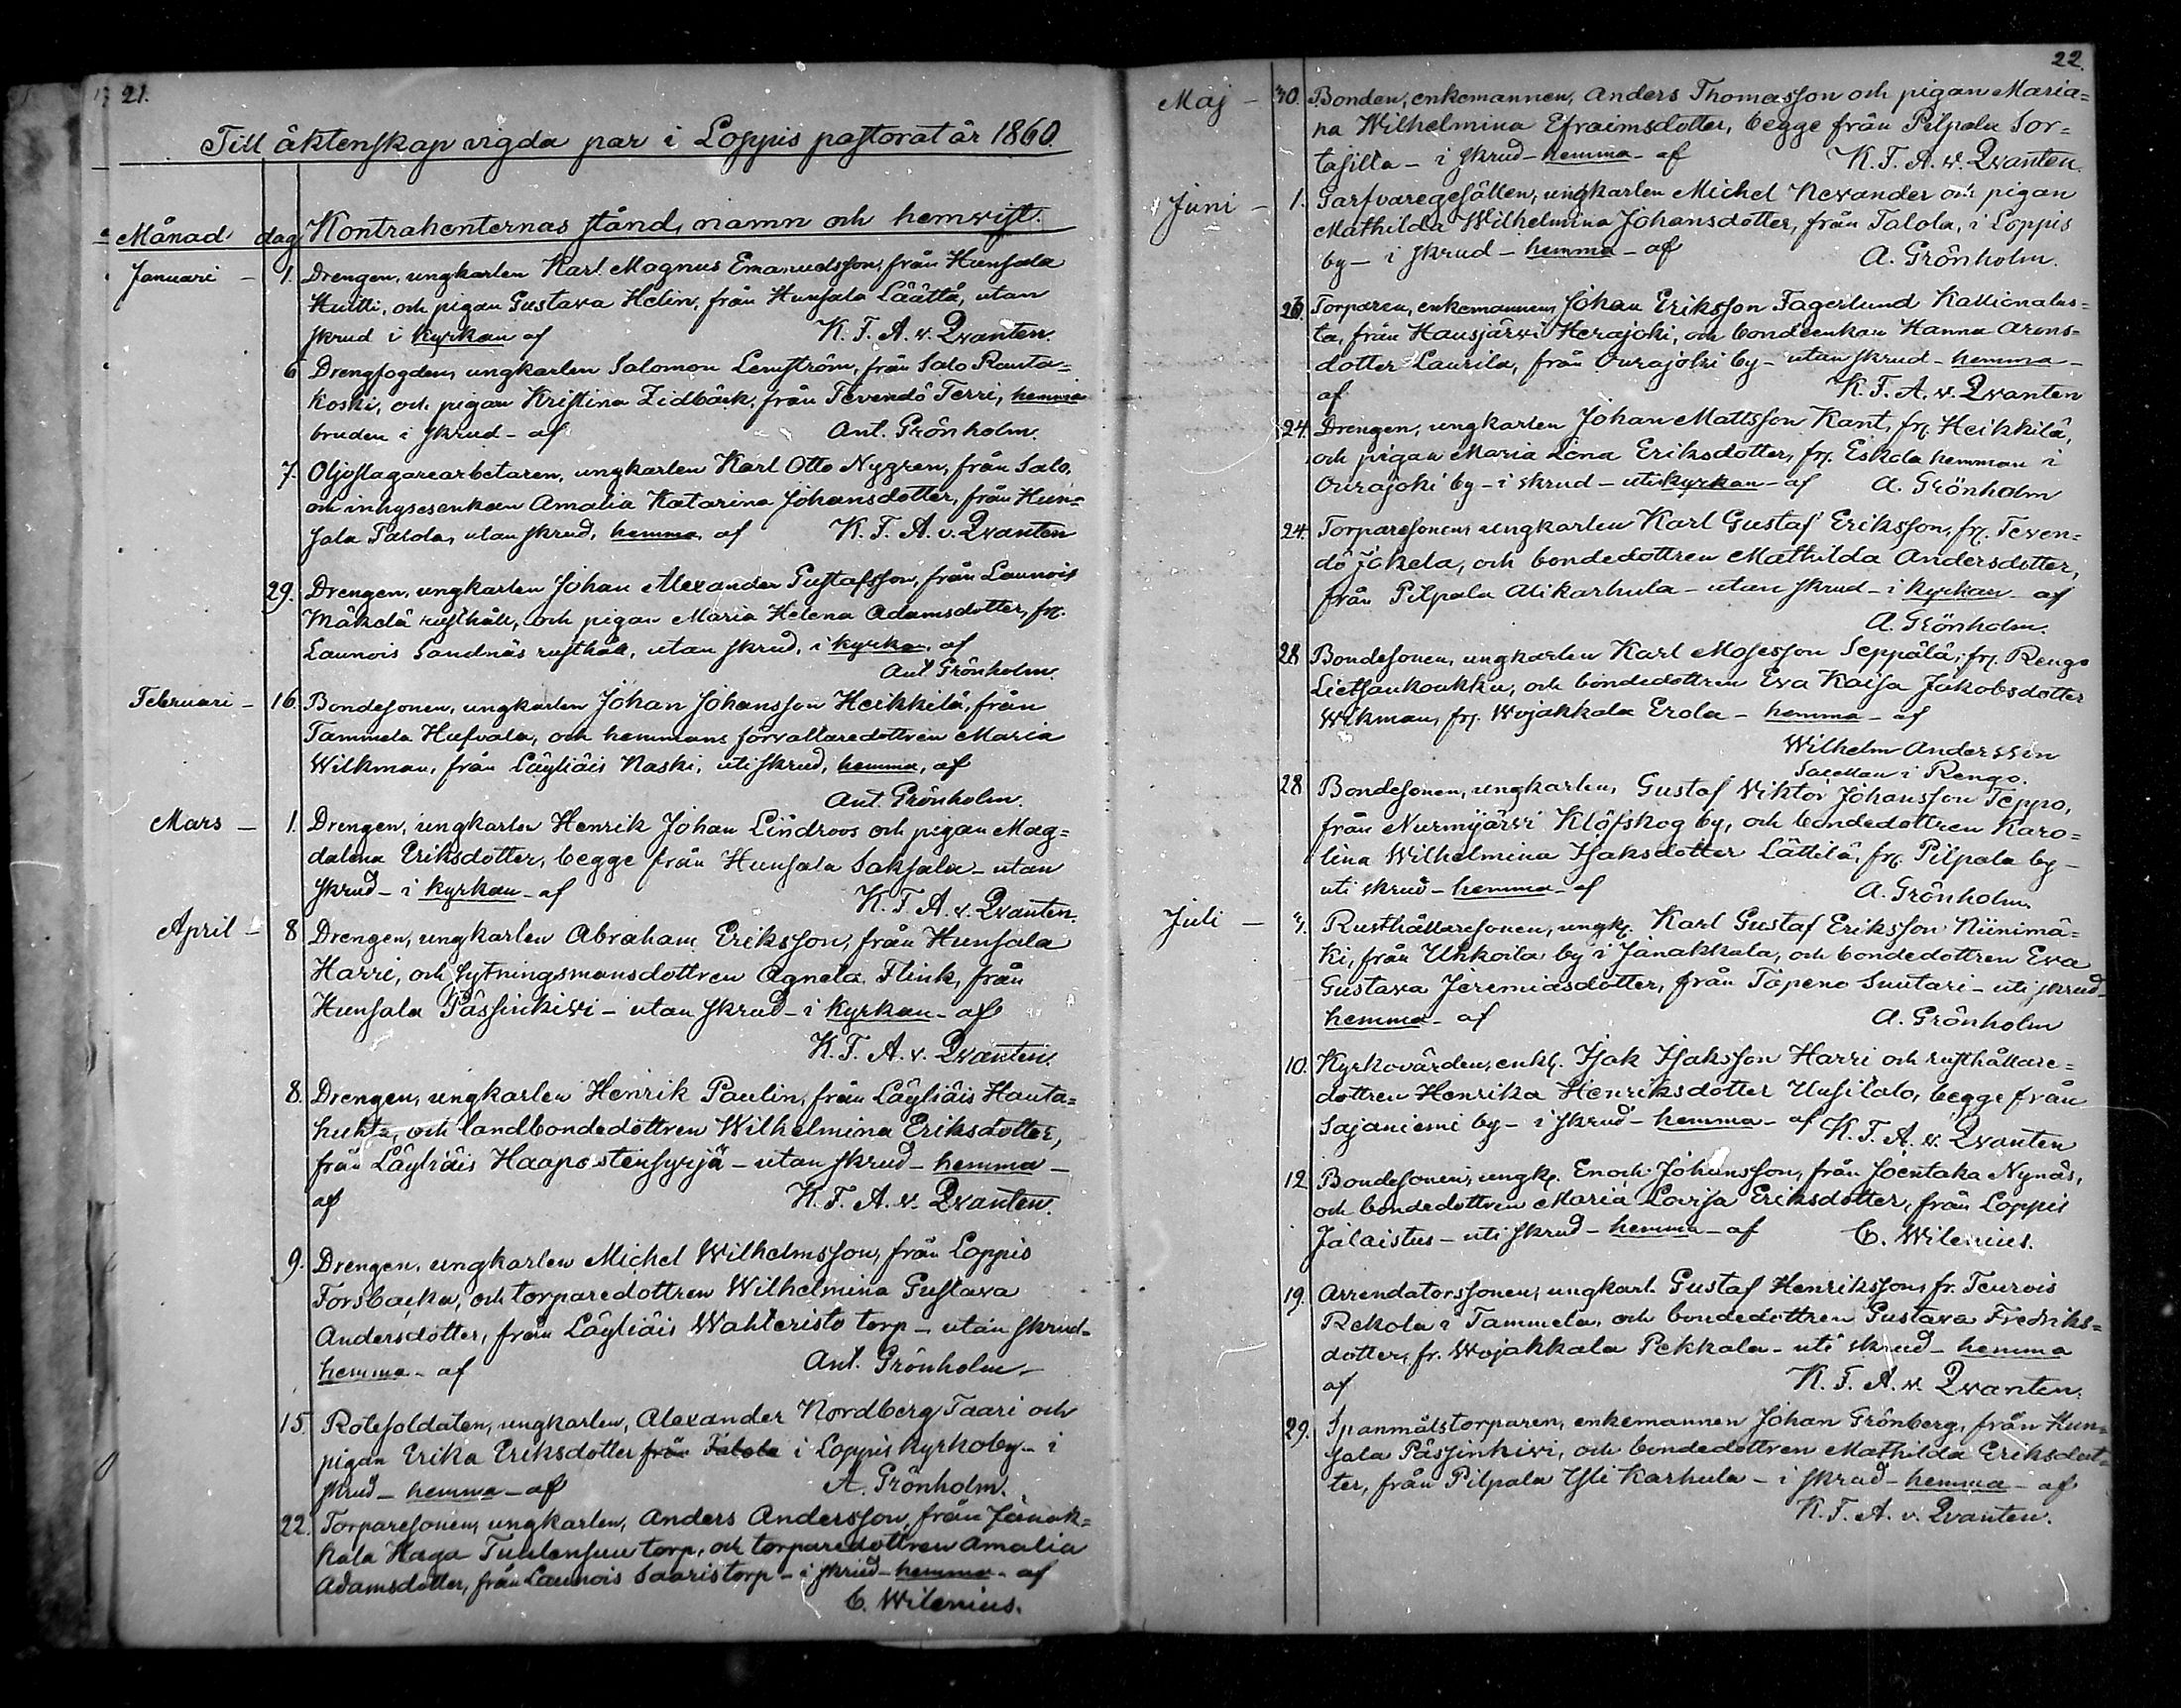 21.
Till äktenskap vigda par i Loppis pastorat år 1860.
Månad dag Kontrahenternas stånd, namn och hemvist.
Januari - 1. Drengen, ungkarlen Karl Magnus Emanuelsson, från Hunsala
Huitti, och pigan Gustava Helin, från Hunsala Läättä, utan
skrud i kyrkan af K. F. A. v. Qvanten.
6 Drengfogden, ungkarlen Salomon Lemström, från Salo Rauta=
koski, och pigan Kristina Lidbäck, från Tevendö Terri, hemma
bruden i skrud - af Ant. Grönholm.
7. Oljeslagarearbetaren, ungkarlen Karl Otto Nygren, från Salo,
och inhysesenkan Amalia Katarina Johansdotter, från Hun=
sala Talola, utan skrud, hemma af K. F. A. v. Qvanten
29. Drengen, ungkarlen Johan Alexander Gustafsson, från Launois
Mäkelä rusthåll, och pigan Maria Helena Adamsdotter, fr.
Launois Sandnäs rusthåll, utan skrud, i kyrkan, af
Ant. Grönholm.
Februari - 16. Bondesonen, ungkarlen Johan Johansson Heikkilä, från
Tammela Hufvala, och hemmans förvaltaredottren Maria
Wilkman, från Läyliäis Naski, uti skrud, hemma, af
Ant. Grönholm.
Mars - 1. Drengen, ungkarlen Henrik Johan Lindroos och pigan Mag=
dalena Eriksdotter, begge från Hunsala Saksala - utan
skrud - i kyrkan - af K. F. A. v. Qvanten.
April - 8 Drengen, ungkarlen Abraham Eriksson, från Hunsala
Harri, och sytningsmansdottren Agneta Flink, från
Hunsala Pässinkivi - utan skrud - i kyrkan - af
K. F. A. v. Qvanten.
8. Drengen, ungkarlen Henrik Paulin, från Läyliäis Hauta=
huhta, och landbondedottren Wilhelmina Eriksdotter,
från Läyliäis Haapastensyrjä - utan skrud - hemma -
af K. F. A. v. Qvanten.
9. Drengen, ungkarlen Michel Wilhelmsson, från Loppis
Forsbacka, och torparedottren Wilhelmina Gustava
Andersdotter, från Läyliäis Wahteristo torp - utan skrud -
hemma - af Ant. Grönholm -
15. Rotesoldaten, ungkarlen, Alexander Nordberg Taari och
pigan Erika Eriksdotter från Talola i Loppis kyrkoby - i
skrud - hemma - af A. Grönholm.
22. Torparesonen, ungkarlen, Anders Andersson, från Janak=
kala Haga Tuulensuu torp, och torparedottren Amalia
Adamsdotter, från Launois Saaris torp - i skrud - hemma - af
C. Wilenius.
22.
Maj - 30. Bonden, enkemannen, Anders Thomasson och pigan Maria=
na Wilhelmina Efraimsdotter, begge från Pilpala Sor=
tasilta - i skrud - hemma - af K. F. A. v. Qvanten.
Juni - 1. Garfvaregesällen, ungkarlen Michel Nevander och pigan
Mathilda Wilhelmina Johansdotter, från Talola, i Loppis
by - i skrud - hemma - af A. Grönholm.
23. Torparen, enkemannen, Johan Eriksson Fagerlund Kallionalus=
ta, från Hausjärvi Herajoki, och bondeenkan Hanna Arons=
dotter Laurila, från Ourajoki by - utan skrud - hemma -
af K. F. A. v. Qvanten
24. Drengen, ungkarlen Johan Mattsson Kant, fr. Heikkilä,
och pigan Maria Lena Eriksdotter, fr. Eskola hemman i
Ourajoki by - i skrud - uti kyrkan - af A. Grönholm
24. Torparesonen, ungkarlen Karl Gustaf Eriksson, fr. Teven=
dö Jokela, och bondedottren Mathilda Andersdotter,
från Pilpala Alikarhula - utan skrud - i kyrkan - af
A. Grönholm.
28 Bondesonen, ungkarlen Karl Mosesson Seppälä, fr. Rengo
Lietsankoukku, och bondedottren Eva Kaisa Jakobsdotter
Wikman, fr. Wojakkala Erola - hemma - af
Wilhelm Andersson
Sacellan i Rengo.
28 Bondesonen, ungkarlen, Gustaf Viktor Johansson Teppo,
från Nurmijärvi Klöfskog by, och bondedottren Karo=
lina Wilhelmina Isaksdotter Lättilä, fr. Pilpala by -
uti skrud - hemma - af A. Grönholm.
Juli - Rusthållaresonen, ungk. Karl Gustaf Eriksson Niinimä=
ki, från Uhkoila by i Janakkala, och bondedottren Eva
Gustava Jeremiasdotter, från Topeno Suutari - uti skrud -
hemma - af A. Grönholm
10. Kyrkovärden, enkl. Isak Isaksson Harri och rusthållare=
dottren Henrika Henriksdotter Uusitalo, begge från
Sajaniemi by - i skrud - hemma - af K. F. A. v. Qvanten
12 Bondesonen, ungk. Enoch Johansson, från Joentaka Nynäs,
och bondedottren Maria Lovisa Eriksdotter, från Loppis
Jalaistus - uti skrud - hemma - af C. Wilenius.
19. Arrendatorssonen, ungkarl. Gustaf Henriksson, fr. Teurois
Rekola i Tammela, och bondedottren Gustava Fredriks=
dotter, fr. Wojakkala Pekkala - uti skrud - hemma
af K. F. A. v. Qvanten.
29. Spanmålstorparen, enkemannen Johan Grönberg, från Hun=
sala Pässinkivi, och bondedottren Mathilda Eriksdot=
ter, från Pilpala Yli Karhula - i skrud - hemma - af
K. F. A. v. Qvanten.